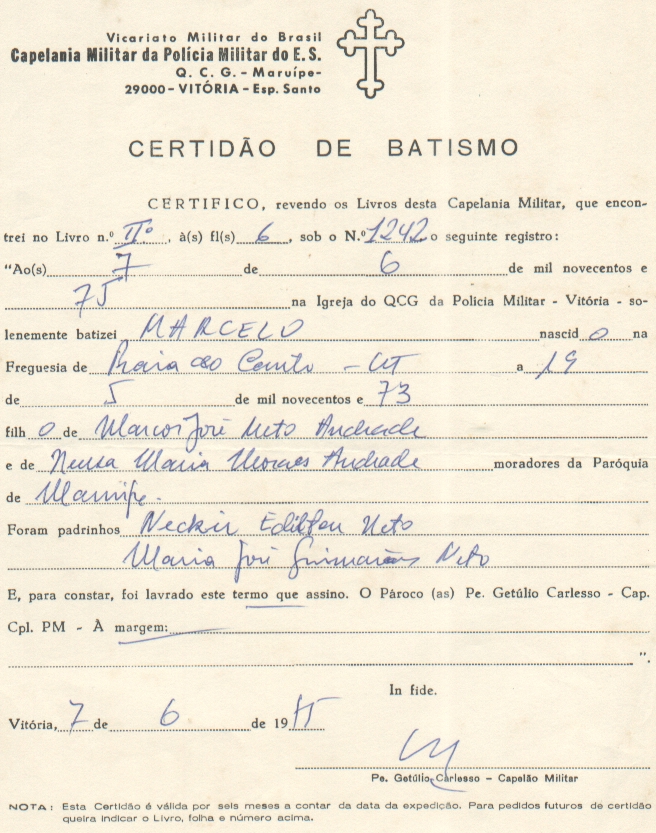 Vicariato Militar do Brasil
Capelania Militar da Polícia Militar do E. S.
Q. C. G. - Maruípe-
29000 - VITÓRIA - Esp. Santo
CERTIDÃO DE BATISMO
CERTIFICO, revendo os Livros desta Capelania Militar, que encon-
trei no Livro n.º IIº, à(s) fl(s) 6, sob o N.º 1242 o seguinte registro:
"Ao(s) 7 de 6 de mil novecentos e
75 na Igreja do QCG da Policia Militar - Vitória - so-
lenemente batizei MARCELO nascid o na
Freguesia de Praia do Canto - a 19
de 5 de mil novecentos e 73
filh o de Marcos José Neto Andrade
e de Neusa Maria Moraes Andrade moradores da Paróquia
de Maruípe.
Foram padrinhos Neckir Neto
Maria José Guimarães Neto
E, para constar, foi lavrado este termo que assino. O Pároco (as) Pe. Getúlio Carlesso - Cap.
Cpl. PM - À margem:
".
In fide.
Vitória, 7 de 6 de 19
Pe. Getúlio Carlesso - Capelão Militar
NOTA: Esta Certidão é válida por seis meses a contar da data da expedição. Para pedidos futuros de certidão
queira indicar o Livro, folha e número acima.